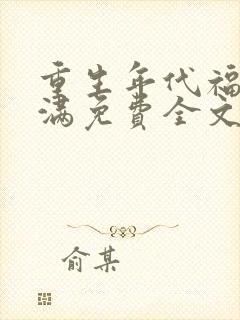 重生年代福
满免费全文
俞某